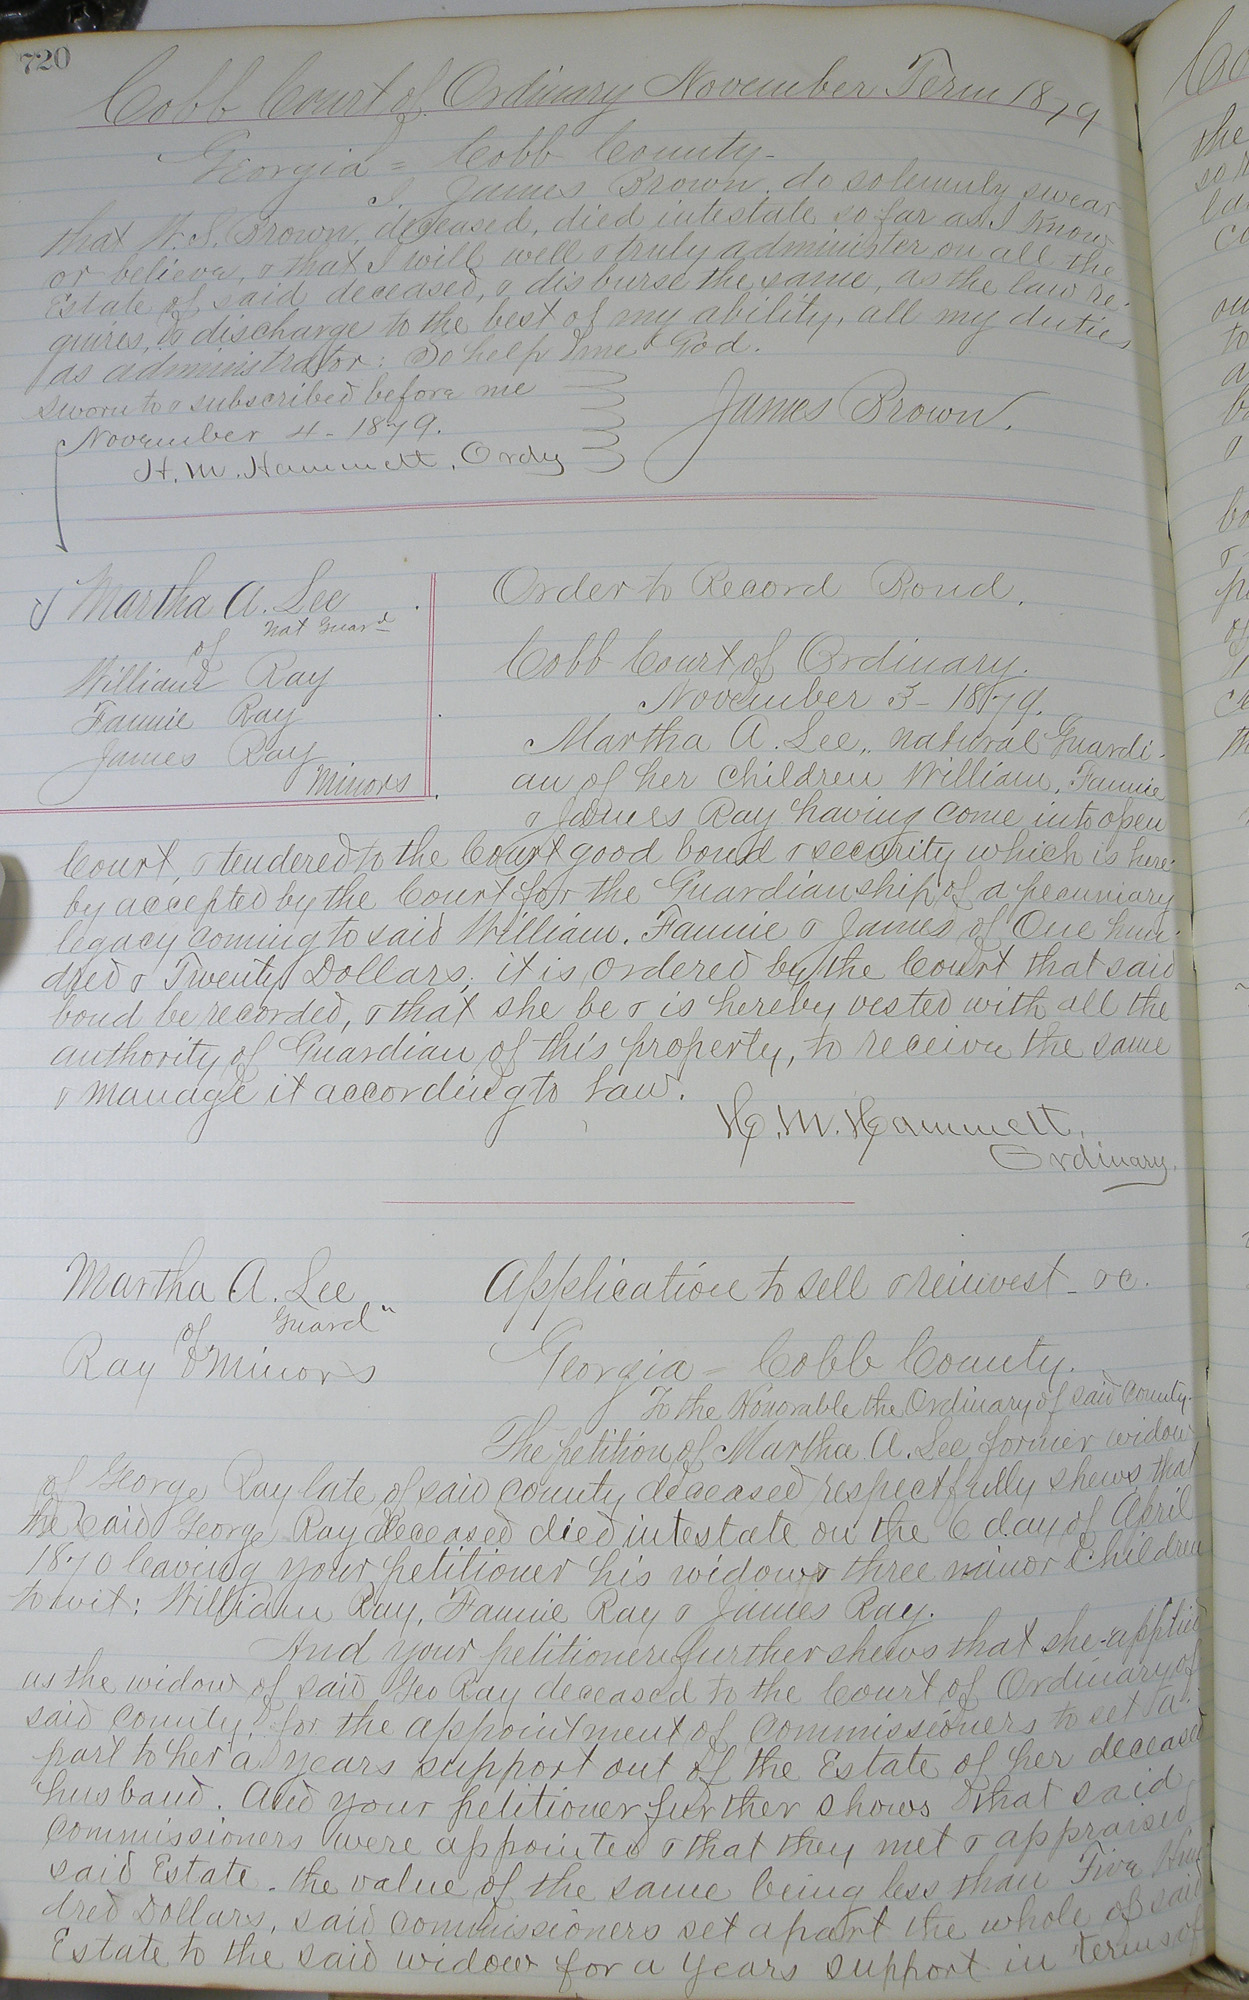 720
Cobb Court of Ordinary November Term 1879
Georgia = Cobb County -
I, James Brown, do solemnly swear
that W. S. Brown, deceased, died intestate so far as I know
or believe, & that I will well & truly administer on all the
Estate of said deceased, & disburse the same, as the law re-
quires, & discharge to the best of my ability, all my duties
as administrator: So help me God.
Sworn to & subscribed before me
November 4 - 1879.
James Brown.
H. M. Hammett, Ordy
Martha A. Lee
Nat Guard
of
William Ray
Fannie Ray
James Ray
Minors
Order to Record Bond.
Cobb Court of Ordinary.
November 3 - 1879.
Martha A. Lee, natural Guardi-
an of her children William, Fannie
& James Ray having come into open
Court, & tendered to the Court good bond & security which is here-
by accepted by the Court for the Guardianship of a pecuniary
legacy coming to said William, Fannie & James of One hun-
dred & Twenty Dollars, it is ordered by the Court that said
bond be recorded, & that she be & is hereby vested with all the
authority of Guardian of this property, to receive the same
& manage it according to law.
H. M. Hammett,
Ordinary.
Martha A. Lee
Guard"
of
Ray Minors
Application to sell & reinvest - &c.
Georgia = Cobb County.
To the Honorable the Ordinary of said County.
The petition of Martha A. Lee former widow
of George Ray late of said county deceased respectfully shews that
the said George Ray deceased died intestate on the 6 day of April
1870 leaving your petitioner his widow & three minor children
to wit: William Ray, Fannie Ray & James Ray.
And your petitioner further shews that she applied
as the widow of said Geo Ray deceased to the Court of Ordinary of
said county for the appointment of commissioners to set a-
part to her a years support out of the Estate of her deceased
husband. And your petitioner further shows that said
commissioners were appointed & that they met & appraised
said Estate - the value of the same being less than Five Hun
dred Dollars, said commissioners set apart the whole of said
Estate to the said widow for a years support in terms of